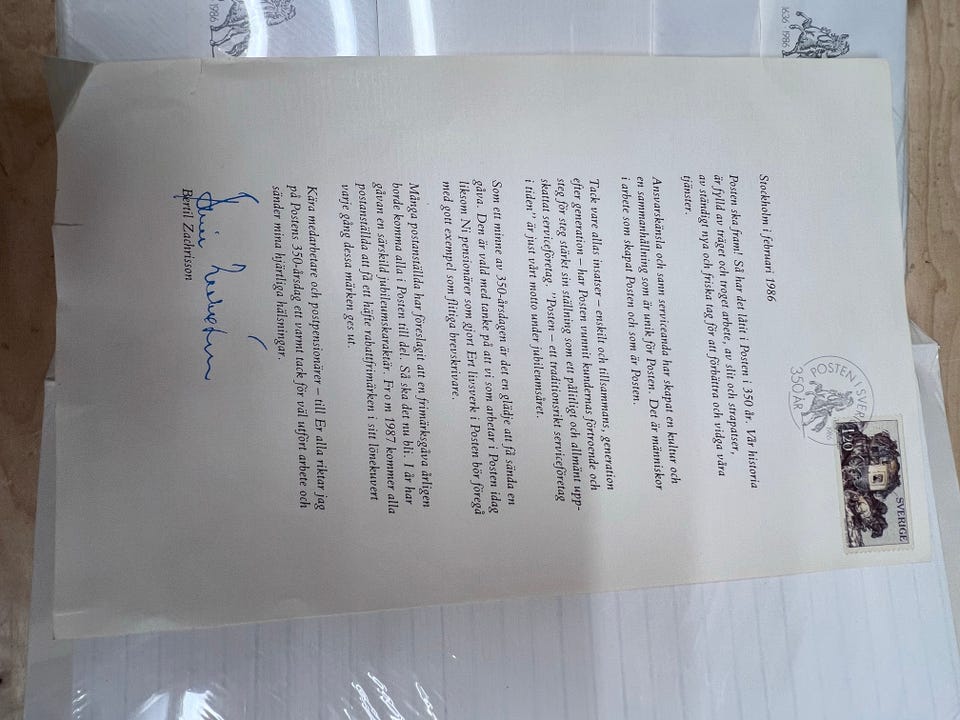 Stockholm i februari 1986
Posten ska fram! Så har det låtit i Posten i 350 år. Vår historia
är fylld av träget och troget arbete, av slit och strapatser,
av ständigt nya och friska tag för att förbättra och vidga våra
tjänster.
Ansvarskänsla och sann serviceanda har skapat en kultur och
en sammanhållning som är unik för Posten. Det är människor
i arbete som skapat Posten och som är Posten.
Tack vare allas insatser – enskilt och tillsammans, generation
efter generation – har Posten vunnit kundernas förtroende och
steg för steg stärkt sin ställning som ett pålitligt och allmänt upp-
skattat serviceföretag. "Posten – ett traditionsrikt serviceföretag
i tiden" är just vårt motto under jubileumsåret.
Som ett minne av 350-årsdagen är det en glädje att få sända en
gåva. Den är vald med tanke på att vi som arbetar i Posten idag
liksom Ni pensionärer som gjort Ert livsverk i Posten bör föregå
med gott exempel som flitiga brevskrivare.
Många postanställda har föreslagit att en frimärksgåva årligen
borde komma alla i Posten till del. Så ska det nu bli. I år har
gåvan en särskild jubileumskaraktär. Fr o m 1987 kommer alla
postanställda att få ett häfte rabattfrimärken i sitt lönekuvert
varje gång dessa märken ges ut.
Kära medarbetare och postpensionärer – till Er alla riktar jag
på Postens 350-årsdag ett varmt tack för väl utfört arbete och
sänder mina hjärtliga hälsningar.
Bertil Zachrisson
POSTEN I SVERI
350 ÅR
SVERIGE
120
1986
1636 1986